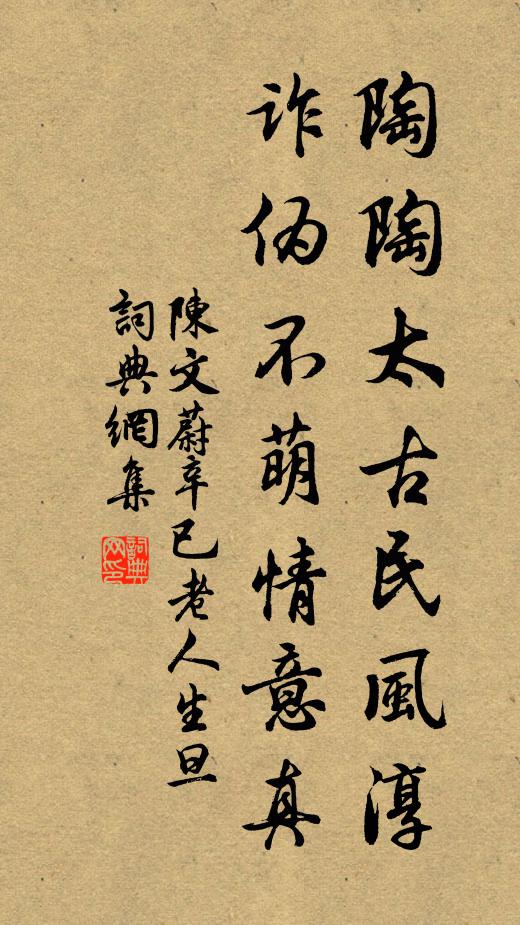 陶陶太古民風淳
詐偽不萌情意真
陳文蔚辛巳老人生旦
詞典網集
詞典网印